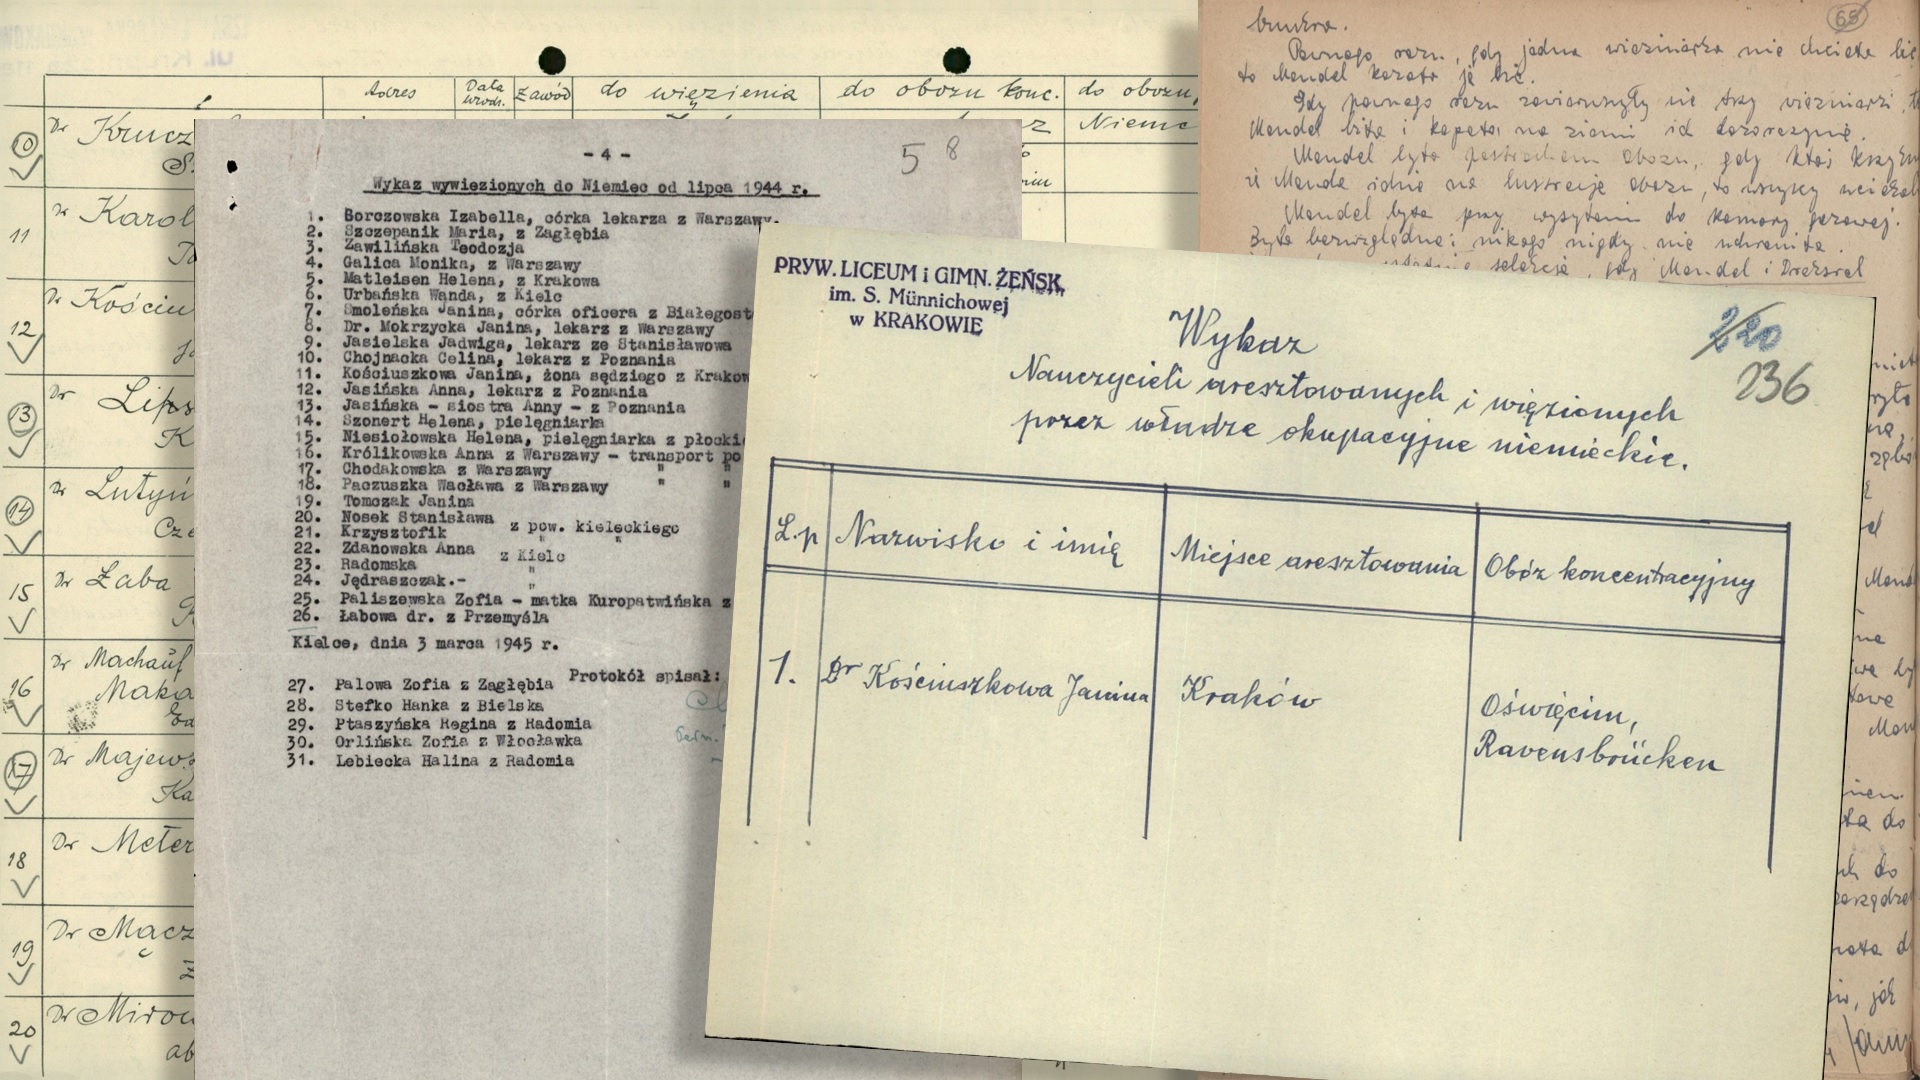 Adres
Data
Zawód
do więzienia
do obozu konc.
do obozu,
10
Dr Krucz
Niemc
11
Dr Karol
12
Dr Kościu
13
Dr Lips
14
Dr Lutyń
Cze
15
Dr Łaba
16
Dr Machauf
Maka
17
Dr Majews
Ka
18
Dr Meter
19
Dr Mącz
20
Dr Mirow
ab
- 4 -
5 8
Wykaz wywiezionych do Niemiec od lipca 1944 r.
1. Borczowska Izabella, córka lekarza z Warszawy.
2. Szczepanik Maria, z Zagłębia
3. Zawilińska Teodozja
4. Galica Monika, z Warszawy
5. Matleisen Helena, z Krakowa
6. Urbańska Wanda, z Kielc
7. Smoleńska Janina, córka oficera z Białegost
8. Dr. Mokrzycka Janina, lekarz z Warszawy
9. Jasielska Jadwiga, lekarz ze Stanisławowa
10. Chojnacka Celina, lekarz z Poznania
11. Kościuszkowa Janina, żona sędziego z Krakow
12. Jasińska Anna, lekarz z Poznania
13. Jasińska - siostra Anny - z Poznania
14. Szonert Helena, pielęgniarka
15. Niesiołowska Helena, pielęgniarka z płocki
16. Królikowska Anna z Warszawy - transport po
17. Chodakowska z Warszawy " "
18. Paczuszka Wacława z Warszawy " "
19. Tomczak Janina
20. Nosek Stanisława z pow. kieleckiego
21. Krzysztofik " "
22. Zdanowska Anna z Kielc
23. Radomska "
24. Jędraszczak.- "
25. Paliszewska Zofia - matka Kuropatwińska z
26. Łabowa dr. z Przemyśla
Kielce, dnia 3 marca 1945 r.
Protokół spisał:
27. Palowa Zofia z Zagłębia
28. Stefko Hanka z Bielska
29. Ptaszyńska Regina z Radomia
30. Orlińska Zofia z Włocławka
31. Lebiecka Halina z Radomia
65
bunkra.
Pewnego razu, gdy jedna więźniarka nie chciała bić
to Mandel kazała ją bić.
Gdy pewnego razu zawieruszyły się trzy więźniarki, t
Mandel biła i kopała na ziemi
Mandel była postrachem obozu, gdy ktoś krzykn
że Mandel idzie na lustrację obozu, to wszyscy uciekal
Mandel była przy wysyłaniu do komory gazowej.
Była bezwzględna i nikogo nigdy nie uchroniła.
selekcje, gdy Mandel i Drexsler
PRYW. LICEUM i GIMN. ŻEŃSK.
im. S. Münnichowej
w KRAKOWIE
220
236
Wykaz
Nauczycieli aresztowanych i więzionych
przez władze okupacyjne niemieckie.
L.p
Nazwisko i imię
Miejsce aresztowania
Obóz koncentracyjny
1.
Dr Kościuszkowa Janina
Kraków
Oświęcim,
Ravensbrücken